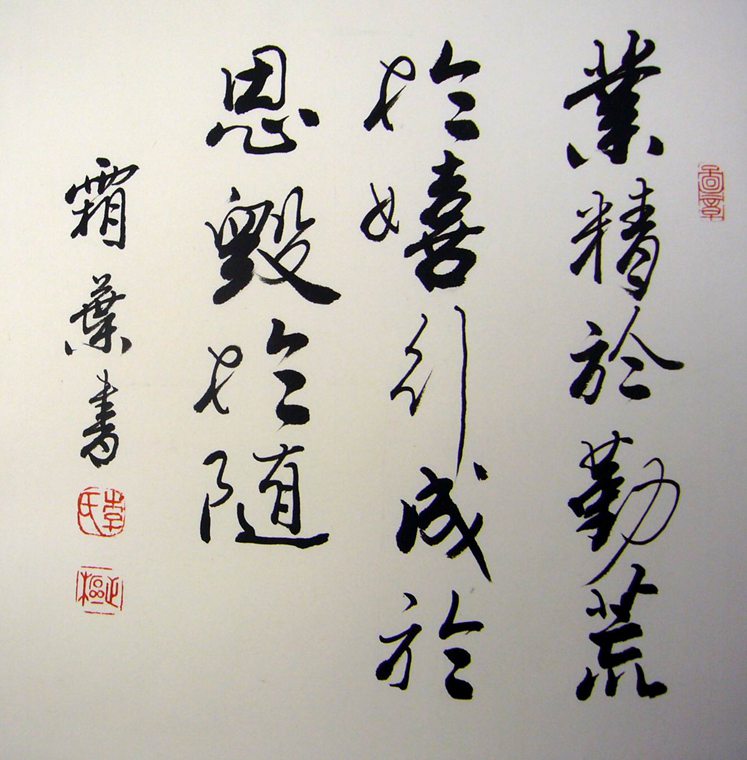 業精於勤荒
於嬉行成於
思毀於隨
霜葉書
李氏